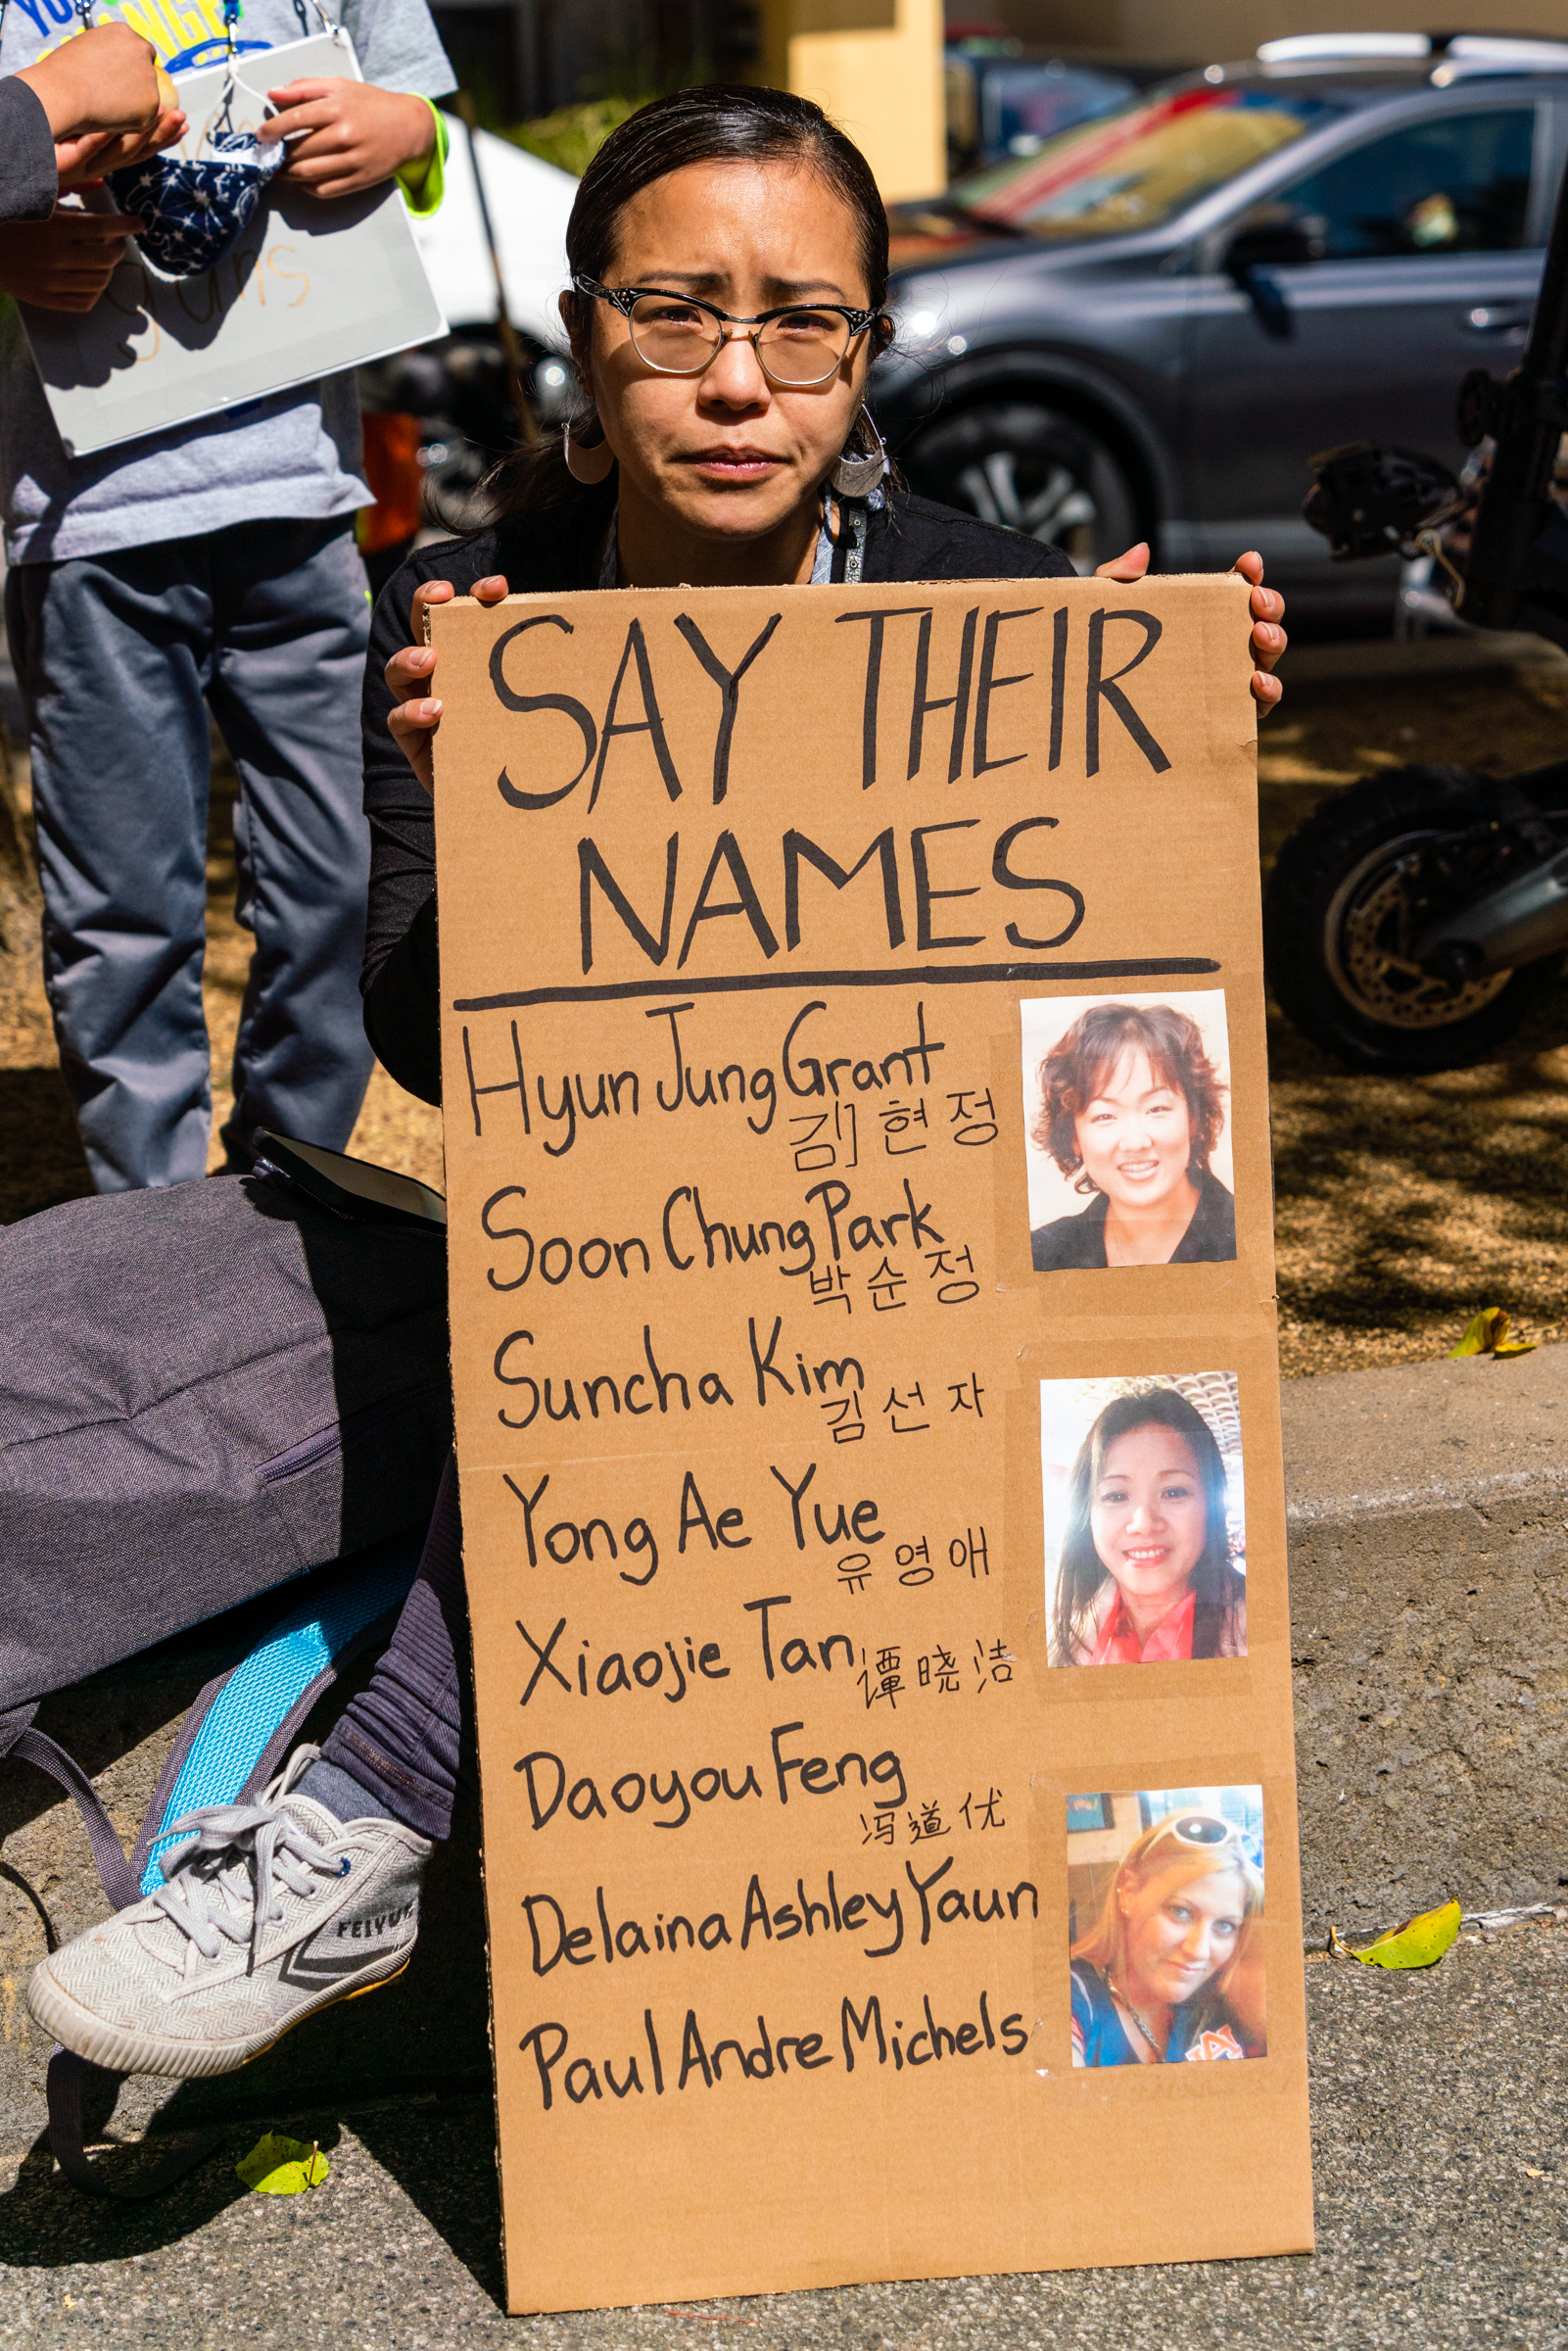 guns
SAY THEIR
NAMES
Hyun Jung Grant
김현정
Soon Chung Park
박순정
Suncha Kim
김선자
Yong Ae Yue
유영애
Xiaojie Tan
谭晓洁
Daoyou Feng
冯道优
Delaina Ashley Yaun
Paul Andre Michels
FEIYUE